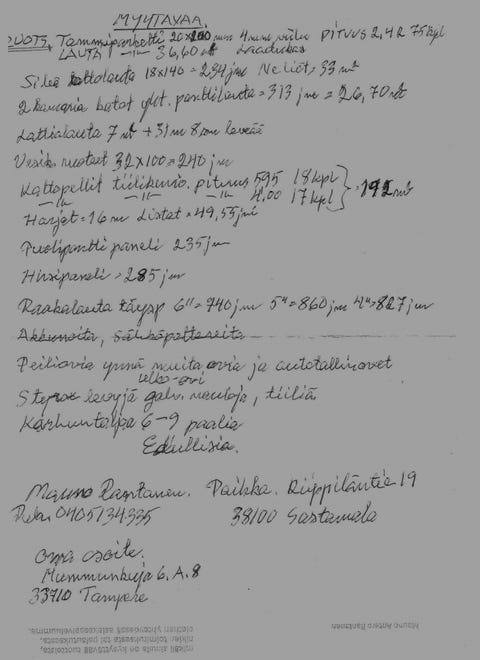 MYYTÄVÄÄ.
RUOTS. Tammiparketti 20x100 mm 4 mm viilu PITUUS 2,42 75 kpl
LAUTA -"- 36,60 m² Laadukas
Sileä kattolauta 18x140 = 234 jm Neliöt = 33 m²
2 kauneia ponttilauta = 313 jm = 26,70 m²
Lattialauta 7 m² + 31 m 8 cm leveää
Vesik. ruoteet 32x100 = 240 jm
Kattopellit tiilikuvio. pituus 595 18 kpl
-"- -"- 4,00 17 kpl } = 192 m²
Harjat = 16 m Listat = 49,55 jm
Puolipontti paneli 235 jm
Hirsipaneli = 285 jm
Raakalauta täysp 6" = 740 jm 5" = 860 jm 4" = 827 jm
Akkunoita, sähköpattereita
Peiliovia ynnä muita ovia ja autotallinovet
ulko-ovi
Styrox levyjä galv. nauloja, tiiliä
Karhuntaljaa 6-9 paalia
Edullisia.
Mauno Rantanen. Paikka. Riippiläntie 19
Puh. 0405134335 38100 Sastamala
Oma osoite.
Mummunkuja 6. A. 8
33710 Tampere
Mauno Antero Rantanen
Mikäli sinulla on kysyttävää tuotteista,
niiden toimituksesta tai palautuksesta,
olethan yhteydessä asiakaspalveluumme.